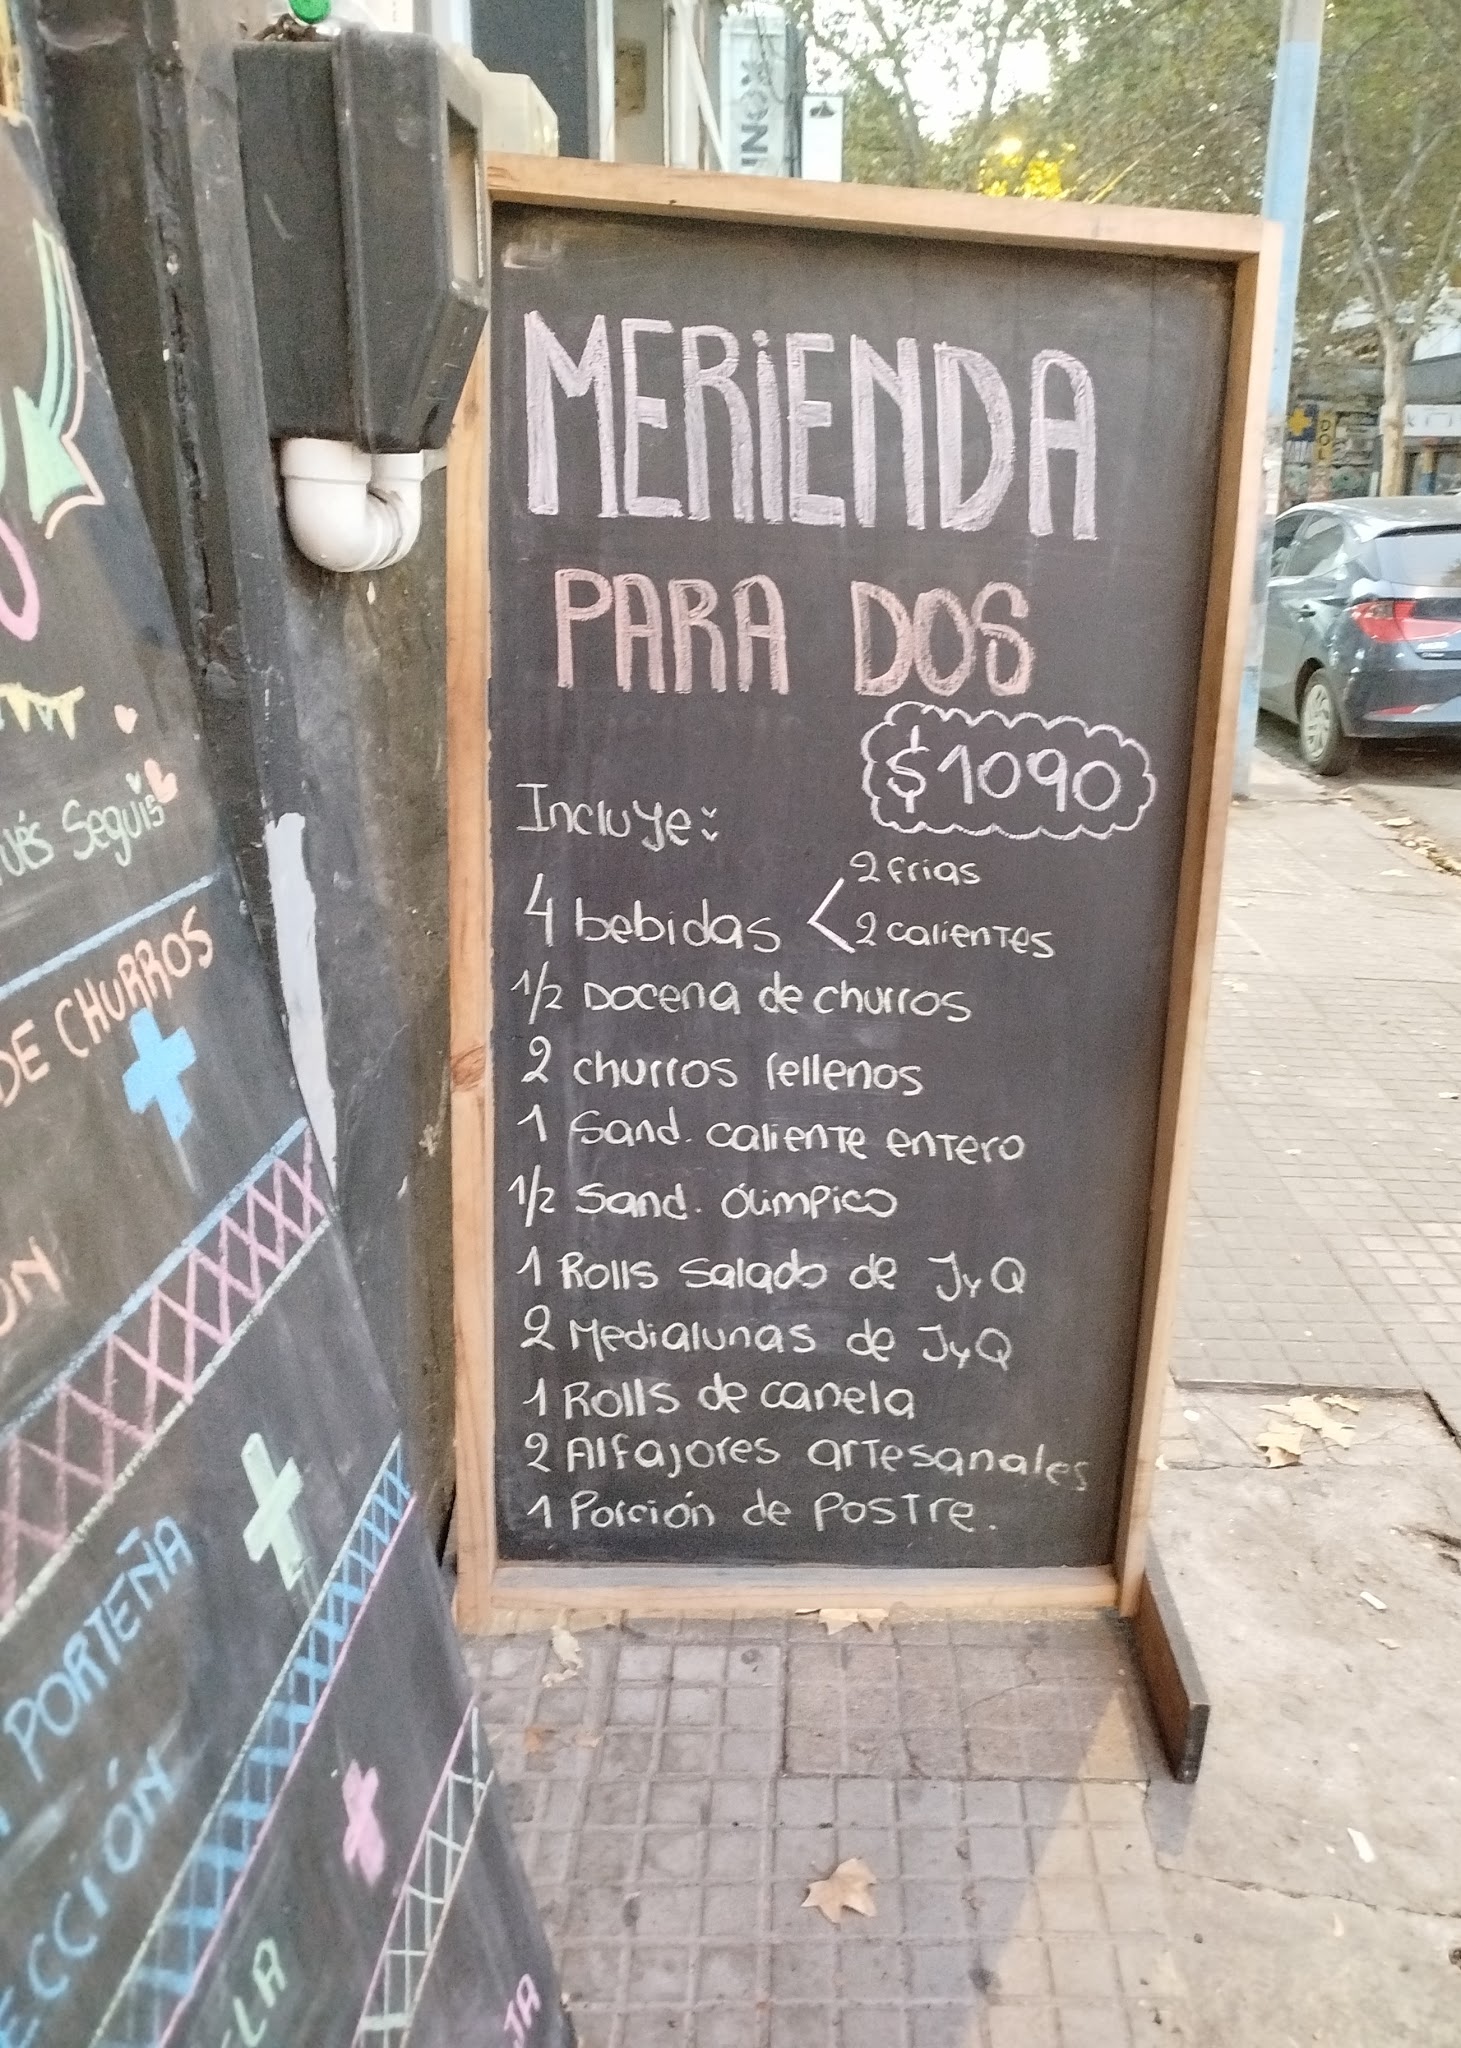 MERiENDA
PARA DOS
$1090
Incluye:
4 bebidas < 2 frias
2 calientes
1/2 Docena de churros
2 churros rellenos
1 Sand. caliente entero
1/2 Sand. Olímpico
1 Rolls salado de JyQ
2 Medialunas de JyQ
1 Rolls de canela
2 Alfajores artesanales
1 Porción de postre.
Seguís
DE CHURROS
PORTEÑA
DOL